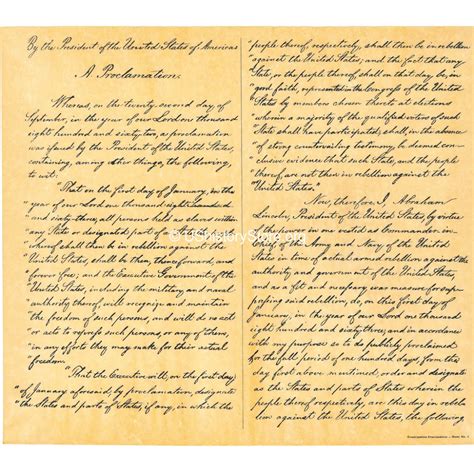 By the President of the United States of America.
A Proclamation.
Whereas, on the twenty second day of
September, in the year of our Lord one thousand
eight hundred and sixty two, a proclamation
was issued by the President of the United States,
containing, among other things, the following,
to wit:
"That on the first day of January, in the
"year of our Lord one thousand eight hundred
"and sixty-three, all persons held as slaves within
"any State or designated part of a State, the people
"whereof shall then be in rebellion against the
"United States, shall be then, thenceforward, and
"forever free; and the Executive Government of the
"United States, including the military and naval
"authority thereof, will recognize and maintain
"the freedom of such persons, and will do no act
"or acts to repress such persons, or any of them,
"in any efforts they may make for their actual
"freedom.
"That the Executive will, on the first day
"of January aforesaid, by proclamation, designate
"the States and parts of States, if any, in which the
people thereof, respectively, shall then be in rebellion
against the United States; and the fact that any
State, or the people thereof, shall on that day be, in
good faith, represented in the Congress of the United
States by members chosen thereto at elections
wherein a majority of the qualified voters of such
State shall have participated, shall, in the absence
of strong countervailing testimony, be deemed con-
clusive evidence that such State, and the people
thereof, are not then in rebellion against the
United States."
Now, therefore I, Abraham
Lincoln, President of the United States, by virtue
of the power in me vested as Commander-in-
Chief of the Army and Navy of the United
States in time of actual armed rebellion against the
authority and government of the United States,
and as a fit and necessary war measure for sup-
pressing said rebellion, do, on this first day of
January, in the year of our Lord one thousand
eight hundred and sixty three, and in accordance
with my purpose so to do publicly proclaimed
for the full period of one hundred days, from the
day first above mentioned, order and designate
as the States and parts of States wherein the
people thereof respectively, are this day in rebel-
lion against the United States, the following,